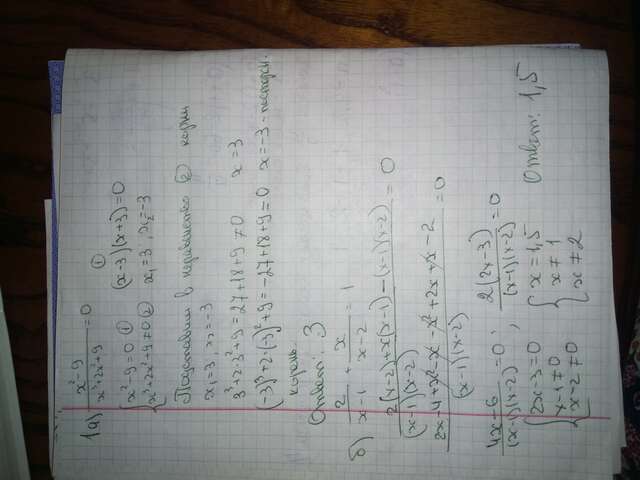 1a) x²-9 / x³+2x²+9 = 0
{ x²-9=0 ① (x-3)(x+3)=0 ①
x³+2x²+9≠0 ② x₁=3, x₂=-3
Подставим в неравенство ② корни
x₁=3, x₂=-3
3³+2·3²+9=27+18+9≠0 x=3
(-3)³+2·(-3)²+9=-27+18+9=0 x=-3 - посторон.
корень.
Ответ: 3
б) 2/(x-1) + x/(x-2) = 1
2(x-2)+x(x-1)-(x-1)(x-2) / (x-1)(x-2) = 0
2x-4+x²-x-x²+2x+x-2 / (x-1)(x-2) = 0
4x-6 / (x-1)(x-2) = 0; 2(2x-3) / (x-1)(x-2) = 0
{ 2x-3=0 { x=1,5 Ответ: 1,5
x-1≠0 x≠1
x-2≠0 x≠2